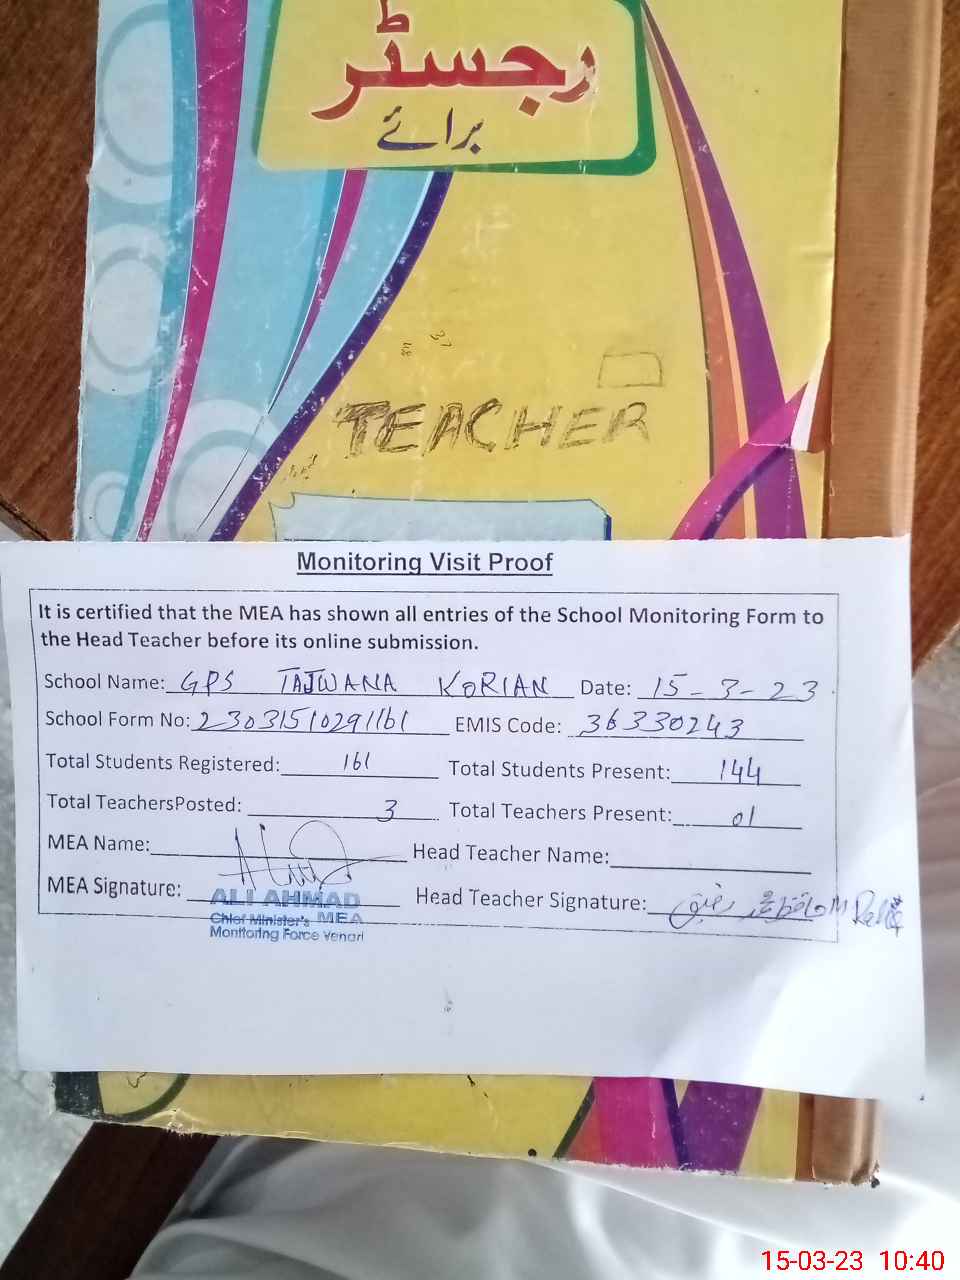 رجسٹر
برائے
TEACHER
Monitoring Visit Proof
It is certified that the MEA has shown all entries of the School Monitoring Form to
the Head Teacher before its online submission.
School Name: GPS TAJWANA KORIAN Date: 15-3-23
School Form No: 23031510291161 EMIS Code: 36330243
Total Students Registered: 161 Total Students Present: 144
Total TeachersPosted: 3 Total Teachers Present: 01
MEA Name: Head Teacher Name:
MEA Signature: Head Teacher Signature:
ALI AHMAD
Chief Minister's MEA
Monitoring Force Vehari
15-03-23 10:40